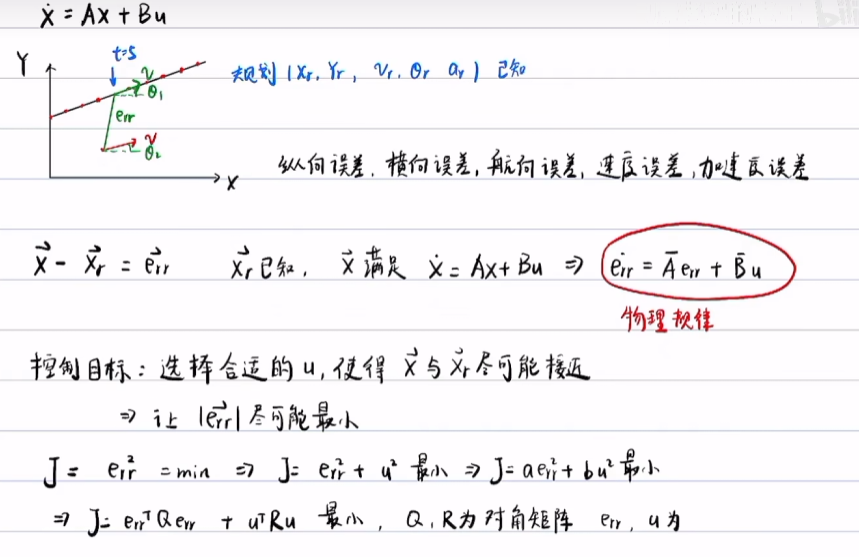 ẋ = Ax + Bu
Y
t=5
v
θ₁
err
v
θ₂
X
规划 (Xr, Yr, vr, θr, ar) 已知
纵向误差, 横向误差, 航向误差, 速度误差, 加速度误差
x⃗ - x⃗r = e⃗rr x⃗r已知, x⃗ 满足 ẋ = Ax + Bu ⇒ ėrr = Āerr + B̄u
物理规律
控制目标: 选择合适的 u, 使得 x⃗ 与 x⃗r 尽可能接近
⇒ 让 |e⃗rr| 尽可能最小
J = err² = min ⇒ J = err² + u² 最小 ⇒ J = aerr² + bu² 最小
⇒ J = errᵀQerr + uᵀRu 最小, Q, R为对角矩阵 err, u为